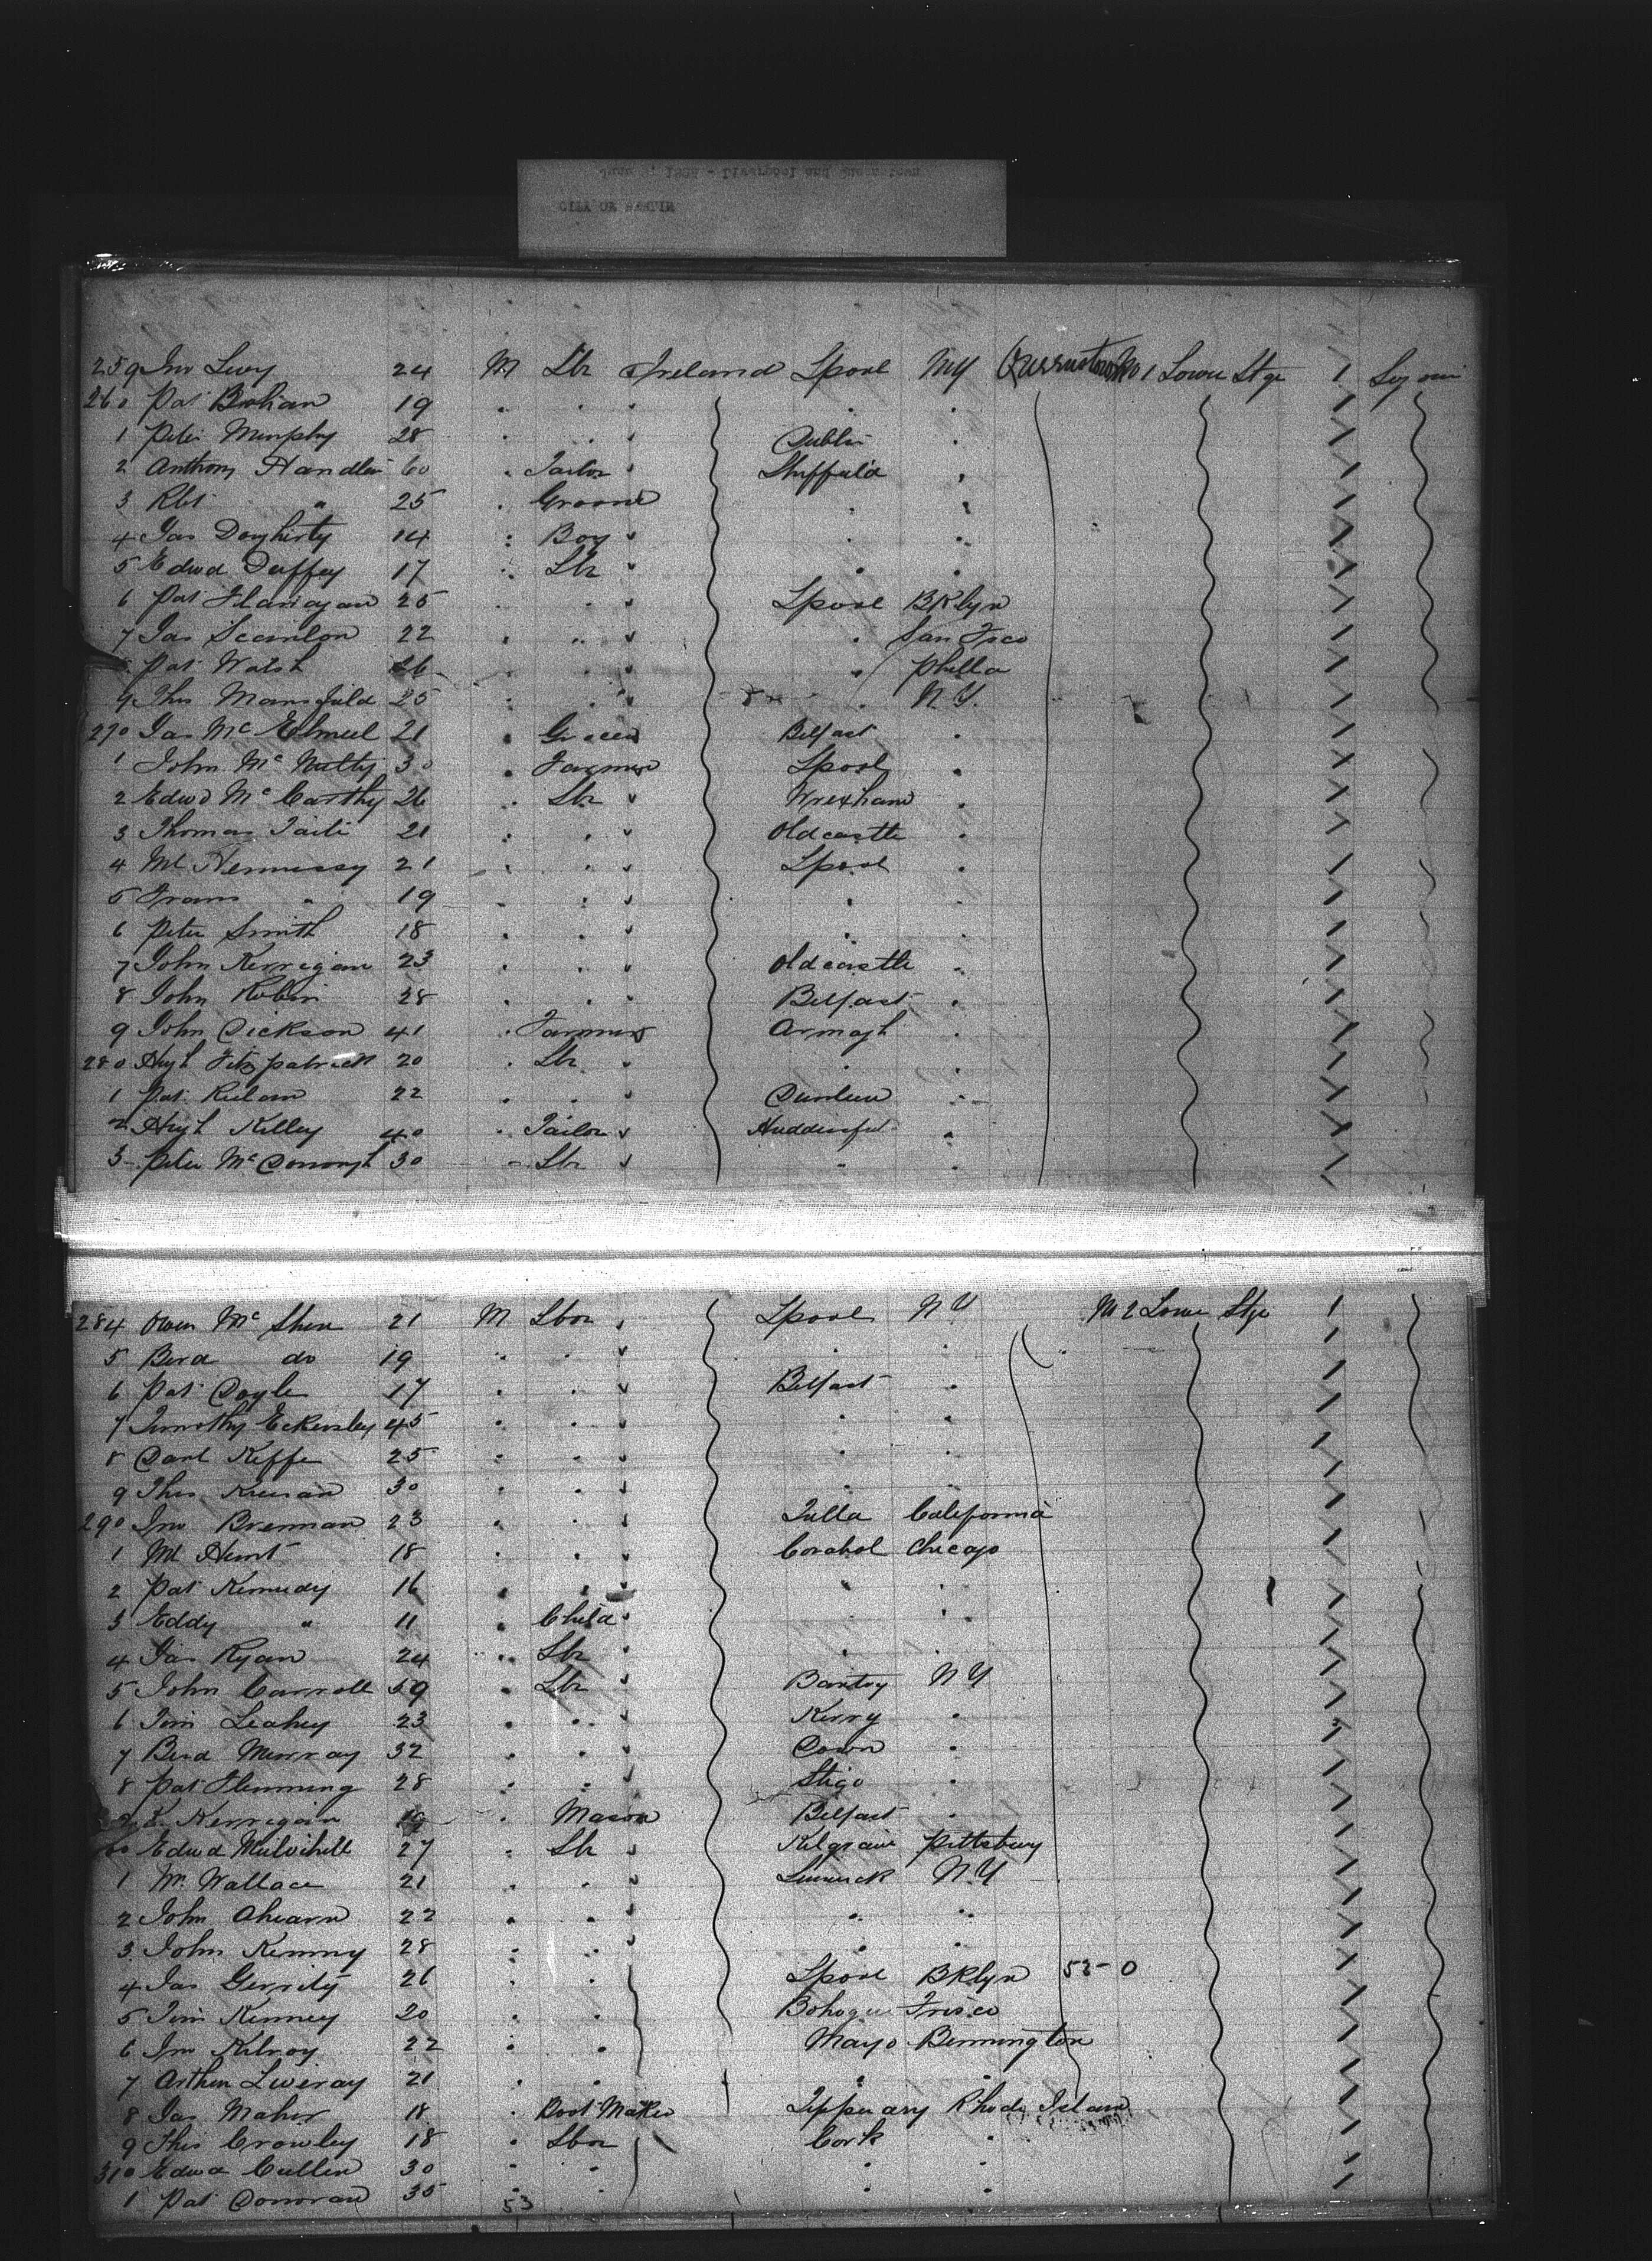 CITY OF BERLIN
259 Jno Levy 24 M Lbr Ireland Lpool NY Queenstown No 1 Lower Stge 1 Sojour
260 Pat Bohan 19 " " " " "
1 Peter Murphy 28 " " " Dublin "
2 Anthony Handler 60 " Tailor " Sheffield "
3 Rbt " 25 " Groom " "
4 Jas Dougherty 14 " Boy " " "
5 Edwd Duffey 17 " Lbr " " "
6 Pat Flanagan 25 " " " Lpool BKlyn
7 Jas Scanlon 22 " " " " San Fsco
Pat Walsh 26 " " " " Philla
9 Thos Mansfield 25 " " " " N Y.
270 Jas Mc 21 " Grocer Belfast "
1 John Mc Nulty 30 " Farmer Lpool "
2 Edwd Mc Carthy 26 " Lbr " Wrexham "
3 Thomas 21 " " " Oldcastle "
4 Ml Hennessy 21 " " " Lpool "
5 Frans " 19 " " " " "
6 Peter Smith 18 " " " " "
7 John Kerrigan 23 " " " Oldcastle "
8 John Robin 28 " " " Belfast "
9 John Dickson 41 " Farmer Armagh "
280 Hugh Fitzpatrick 20 " Lbr " " "
1 Pat 22 " " " "
2 Hugh Killey 40 " Tailor " "
3 Peter McDonough 30 " Lbr " " "
284 Owen Mc Shen 21 M Lbor " Lpool N Y No 2 Lower Stge 1
5 Bernd do 19 " " " " "
6 Pat Doyle 17 " " " Belfast "
7 Timothy Eckersley 45 " " " " "
8 Danl Keffe 25 " " " " "
9 Thos Kiernan 30 " " " "
290 Jno Brennan 23 " " " Tulla California
1 Ml Hunt 18 " " " Chicago
2 Pat Kennedy 16 " " " " "
3 Eddy " 11 " Child " " "
4 Jas Ryan 24 " Lbr " " "
5 John Carroll 59 " Lbr " Bantry N Y
6 Tim Leahey 23 " " " Kerry "
7 Bernd Murray 32 " " " Down "
8 Pat Flemming 28 " " " Sligo "
9 K. Kerrigan 19 " Mason Belfast "
Edwd Mulvihill 27 " Lbr " Pittsburg
1 Wm Wallace 21 " " " Limerick N.Y
2 John Ahearn 22 " " " " "
3 John Kenny 28 " " " " "
4 Jas Gerrity 26 " " Lpool BKlyn 53-0
5 Tim Kenney 20 " " Frisco
6 Jno Kilroy 22 " " Mayo Bennington
7 Arthur 21 " " " "
8 Jas Maher 18 " Boot Maker Tipperary Rhode Island
9 Thos Crowley 18 " Lbor Cork "
310 Edwd Cullen 30 " " " "
1 Pat Donovan 35 " " " "
53